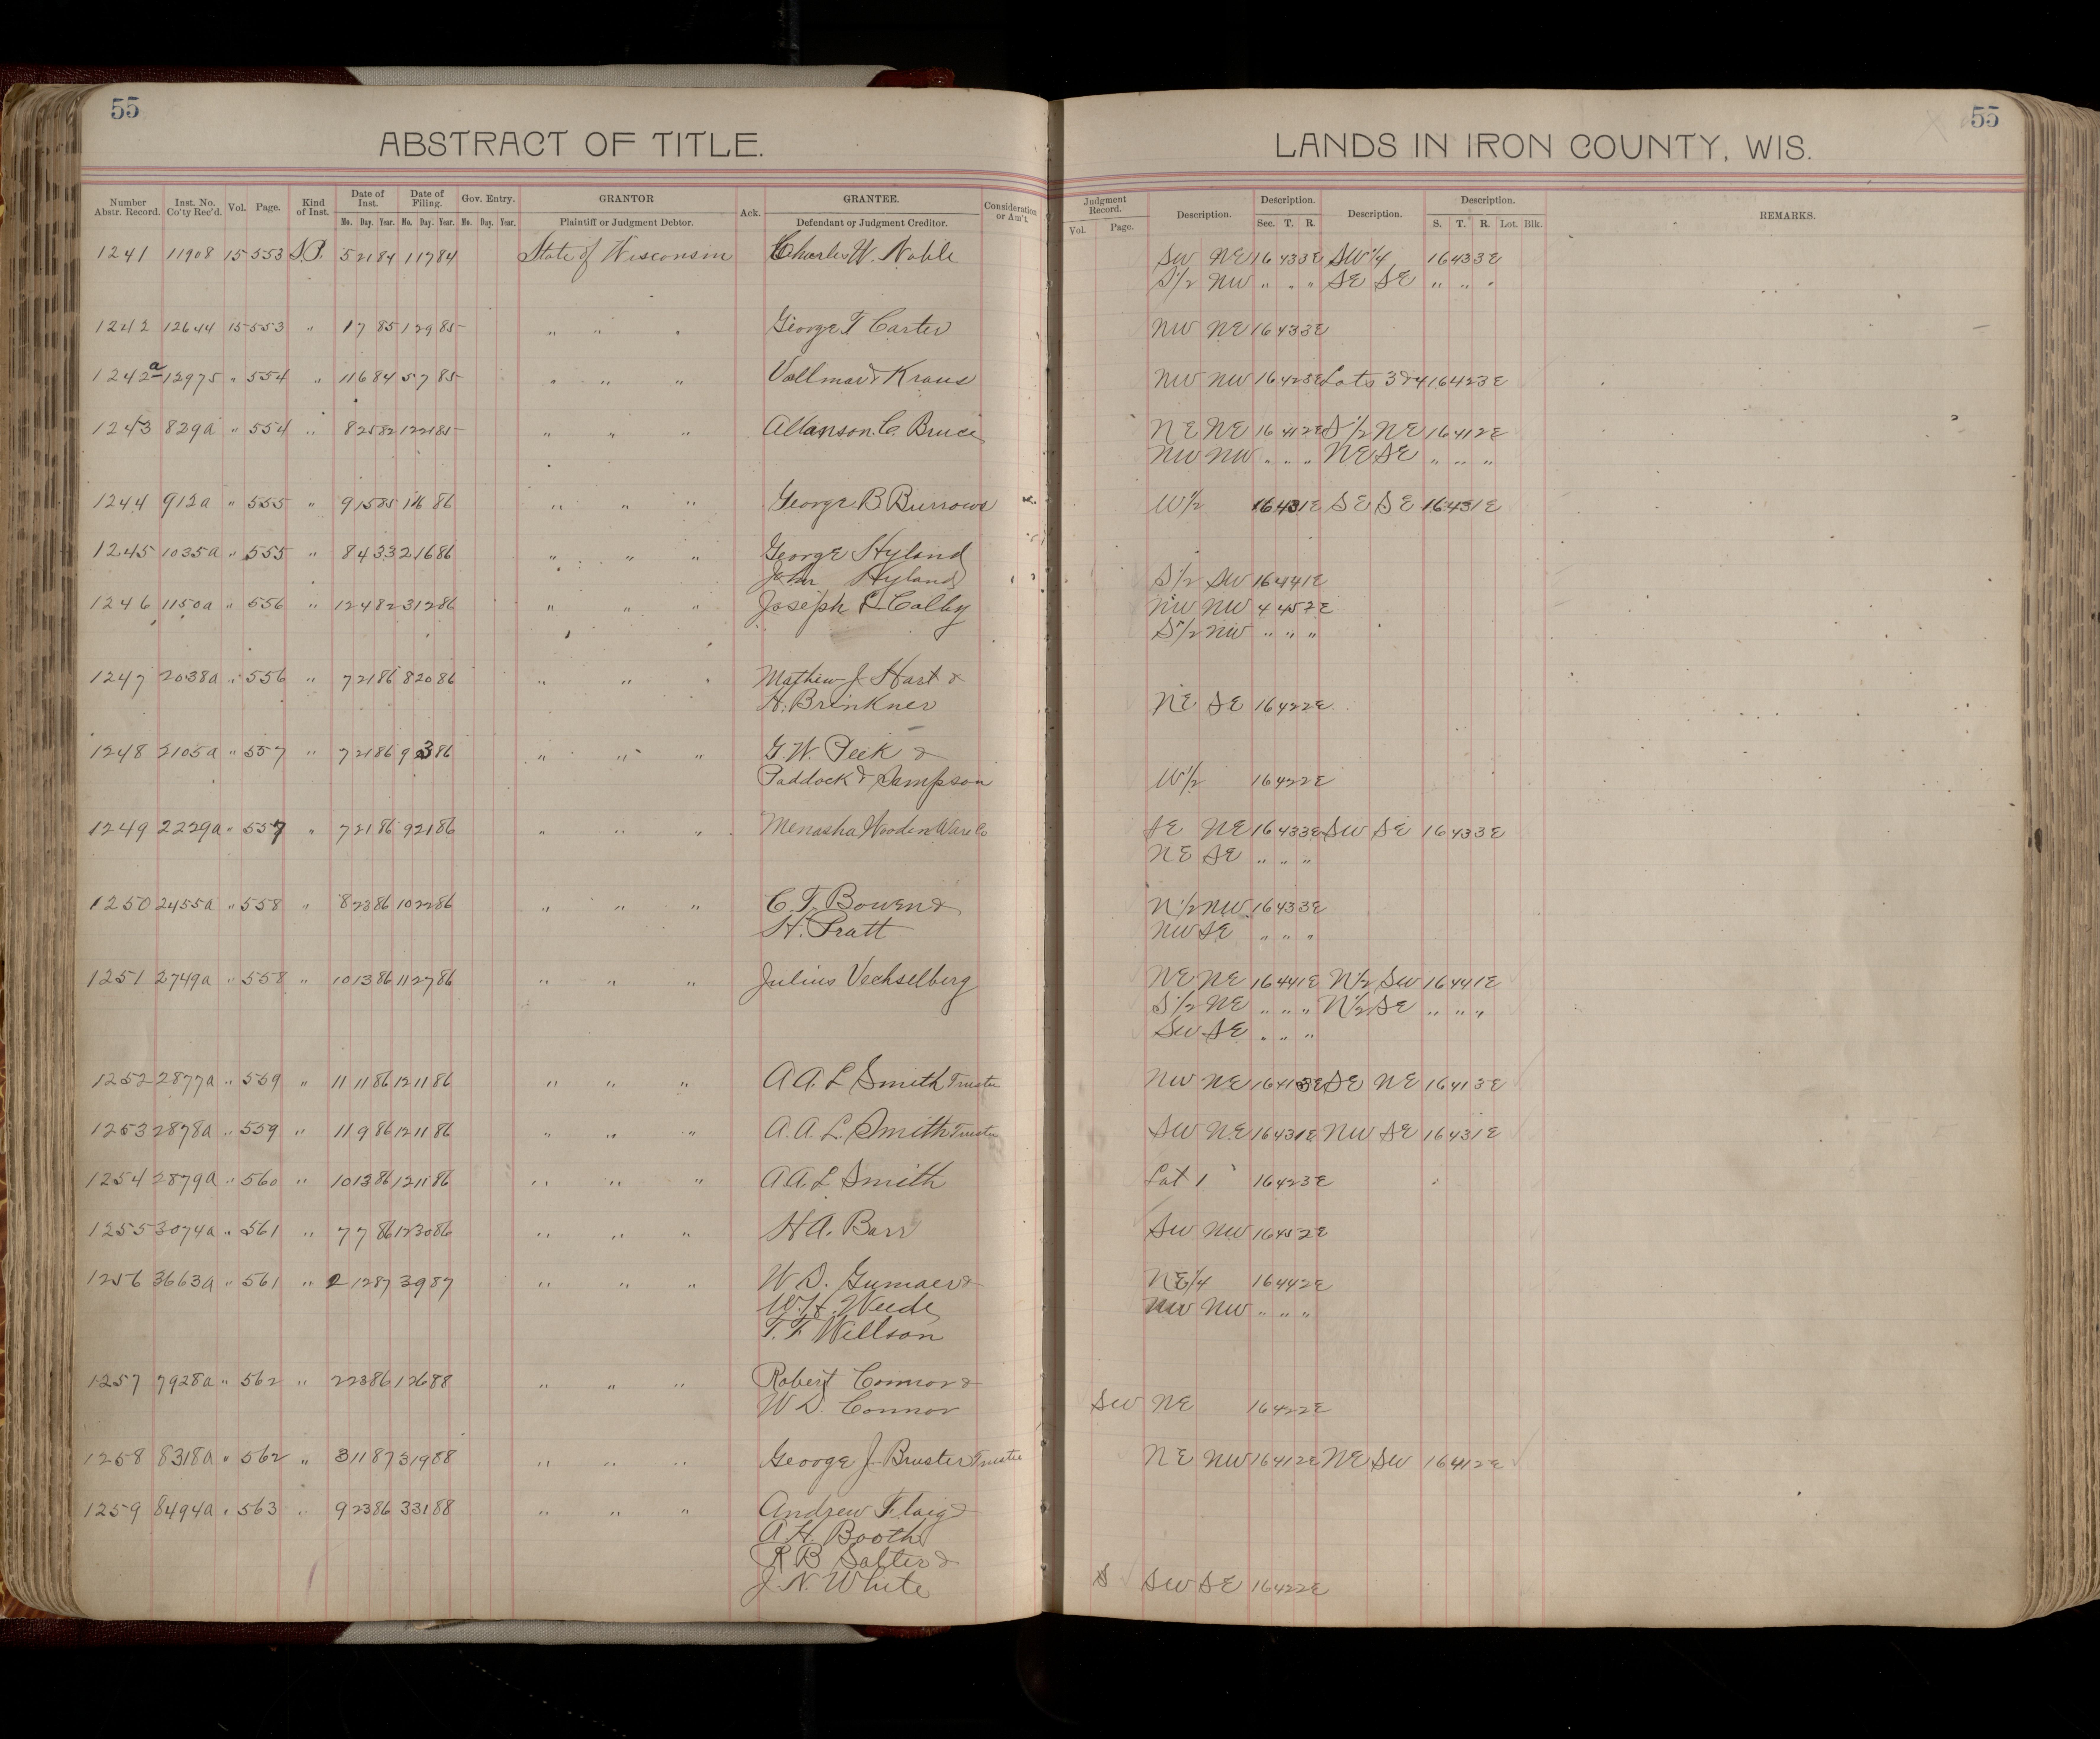 55
ABSTRACT OF TITLE.
Number Abstr. Record. Inst. No. Co'ty Rec'd. Vol. Page. Kind of Inst. Date of Inst. Date of Filing. Gov. Entry. GRANTOR Ack. GRANTEE. Consideration or Am't.
Mo. Day. Year. Mo. Day. Year. Mo. Day. Year. Plaintiff or Judgment Debtor. Defendant or Judgment Creditor.
1241 11908 15 553 S.P. 5 21 84 1 17 84 State of Wisconsin Charles W. Noble
1242 12644 15 553 " 1 7 85 1 29 85 " " " George T Carter
1242a 12975 " 554 " 11 6 84 5 7 85 " " " Vollmar & Kraus
1243 829a " 554 " 8 25 82 12 21 85 " " " Allanson C. Bruce
1244 912a " 555 " 9 15 85 1 16 86 " " " George B Burrows
1245 1035a " 555 " 8 4 33 2 16 86 " " " George Hyland
John Hyland
1246 1150a " 556 " 12 4 82 3 12 86 " " " Joseph L Colby
1247 2038a " 556 " 7 21 86 8 20 86 " " " Mathew J Hart &
H. Brinkner
1248 2105a " 557 " 7 21 86 9 3 86 " " " G. W. Peck &
Paddock & Sampson
1249 2229a " 557 " 7 21 86 9 21 86 " " " Menasha Wooden Ware Co
1250 2455a " 558 " 8 23 86 10 22 86 " " " C. T. Bowen &
H. Pratt
1251 2749a " 558 " 10 13 86 11 27 86 " " " Julius Vechselberg
1252 2877a " 559 " 11 11 86 12 11 86 " " " A A. L Smith Trustee
1253 2878a " 559 " 11 9 86 12 11 86 " " " A. A. L. Smith Trustee
1254 2879a " 560 " 10 13 86 12 11 86 " " " A A. L Smith
1255 3074a " 561 " 7 7 86 12 30 86 " " " H A. Barr
1256 3663a " 561 " 2 12 87 3 9 87 " " " W D. Gumaer &
W. H. Weed &
T. F Willson
1257 7928a " 562 " 2 23 86 1 26 88 " " " Robert Connor &
W D. Connor
1258 8318a " 562 " 3 11 87 3 19 88 " " " George J. Bruster Trustee
1259 8494a " 563 " 9 23 86 3 31 88 " " " Andrew Flaig &
A. H. Booth
R B Salter &
J. N. White
55
LANDS IN IRON COUNTY, WIS.
Judgment Record. Description. Description. Description. Description. REMARKS.
Vol. Page. Sec. T. R. S. T. R. Lot. Blk.
SW NE 16 43 3E SW 1/4 16 43 3E
S 1/2 NW " " " SE SE " " "
NW NE 16 43 3E
NW NW 16 42 3E Lots 3 & 4 16 42 3E
NE NE 16 41 2E S 1/2 NE 16 41 2E
NW NW " " " NE SE " " "
W 1/2 16 43 1E SE SE 16 43 1E
S 1/2 SW 16 44 1E
NW NW 4 45 2E
S 1/2 NW " " "
NE SE 16 42 2E
W 1/2 16 42 2E
SE NE 16 43 3E SW SE 16 43 3E
NE SE " " "
N 1/2 NW 16 43 3E
NW SE " " "
NE NE 16 44 1E N 1/2 SW 16 44 1E
S 1/2 NE " " " N 1/2 SE " " "
SW SE " " "
NW NE 16 41 3E SE NE 16 41 3E
SW NE 16 43 1E NW SE 16 43 1E
Lot 1 16 42 3E
SW NW 16 45 2E
NE 1/4 16 44 2E
NW NW " " "
SW NE 16 42 2E
NE NW 16 41 2E NE SW 16 41 2E
S SW SE 16 42 2E